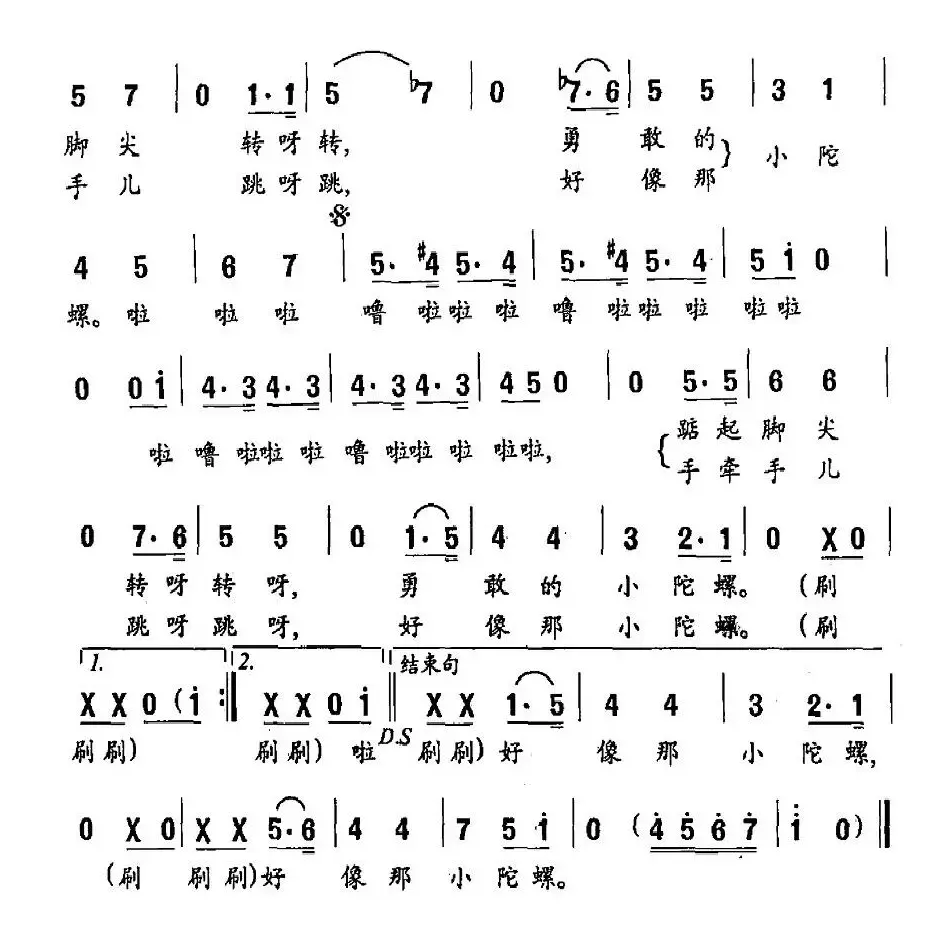 5 7 | 0 1·1 | 5 ♭7 | 0 ♭7·6 | 5 5 | 3 1 |
脚 尖 转 呀 转, 勇 敢 的 } 小 陀
手 儿 跳 呀 跳, 好 像 那
𝄋
4 5 | 6 7 | 5·♯4 5·4 | 5·♯4 5·4 | 5 i 0 |
螺。啦 啦 啦 噜 啦啦 啦 噜 啦啦 啦 啦啦
0 0 i | 4·3 4·3 | 4·3 4·3 | 4 5 0 | 0 5·5 | 6 6 |
啦 噜 啦啦 啦 噜 啦啦 啦 啦啦, { 踮 起 脚 尖
手 牵 手 儿
0 7·6 | 5 5 | 0 1·5 | 4 4 | 3 2·1 | 0 X 0 |
转 呀 转 呀, 勇 敢 的 小 陀 螺。 (刷
跳 呀 跳 呀, 好 像 那 小 陀 螺。 (刷
1. 2. 结束句
X X 0 (i :‖ X X 0 i ‖ X X 1·5 | 4 4 | 3 2·1 |
D.S
刷 刷) 刷 刷) 啦 刷 刷) 好 像 那 小 陀 螺,
0 X 0 | X X 5·6 | 4 4 | 7 5 i | 0 (4 5 6 7 | i 0) ‖
(刷 刷 刷)好 像 那 小 陀 螺。